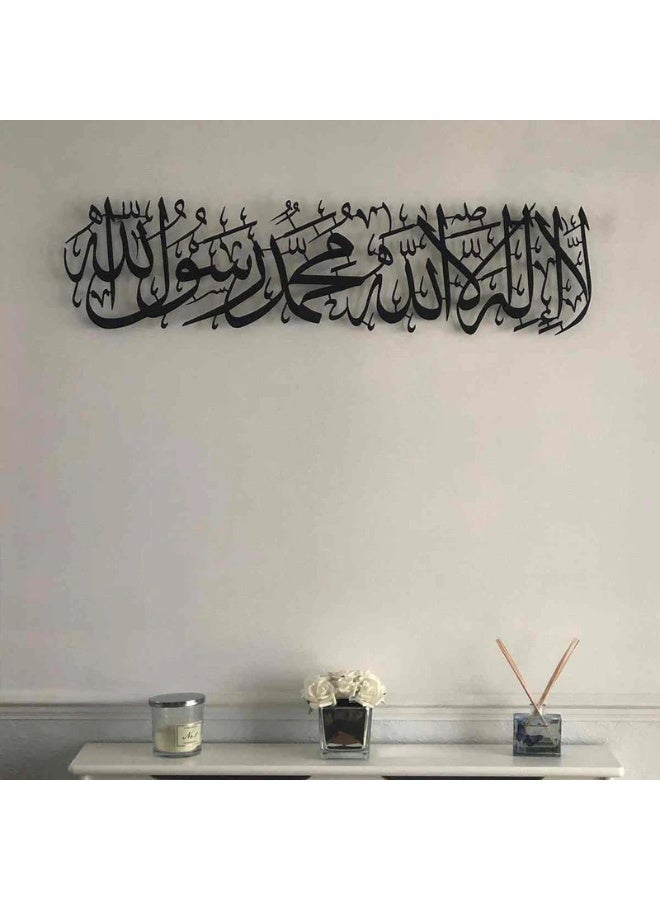 لَا إِلَٰهَ إِلَّا اللّٰه مُحَمَّدٌ رَسُولُ اللّٰه
No.1